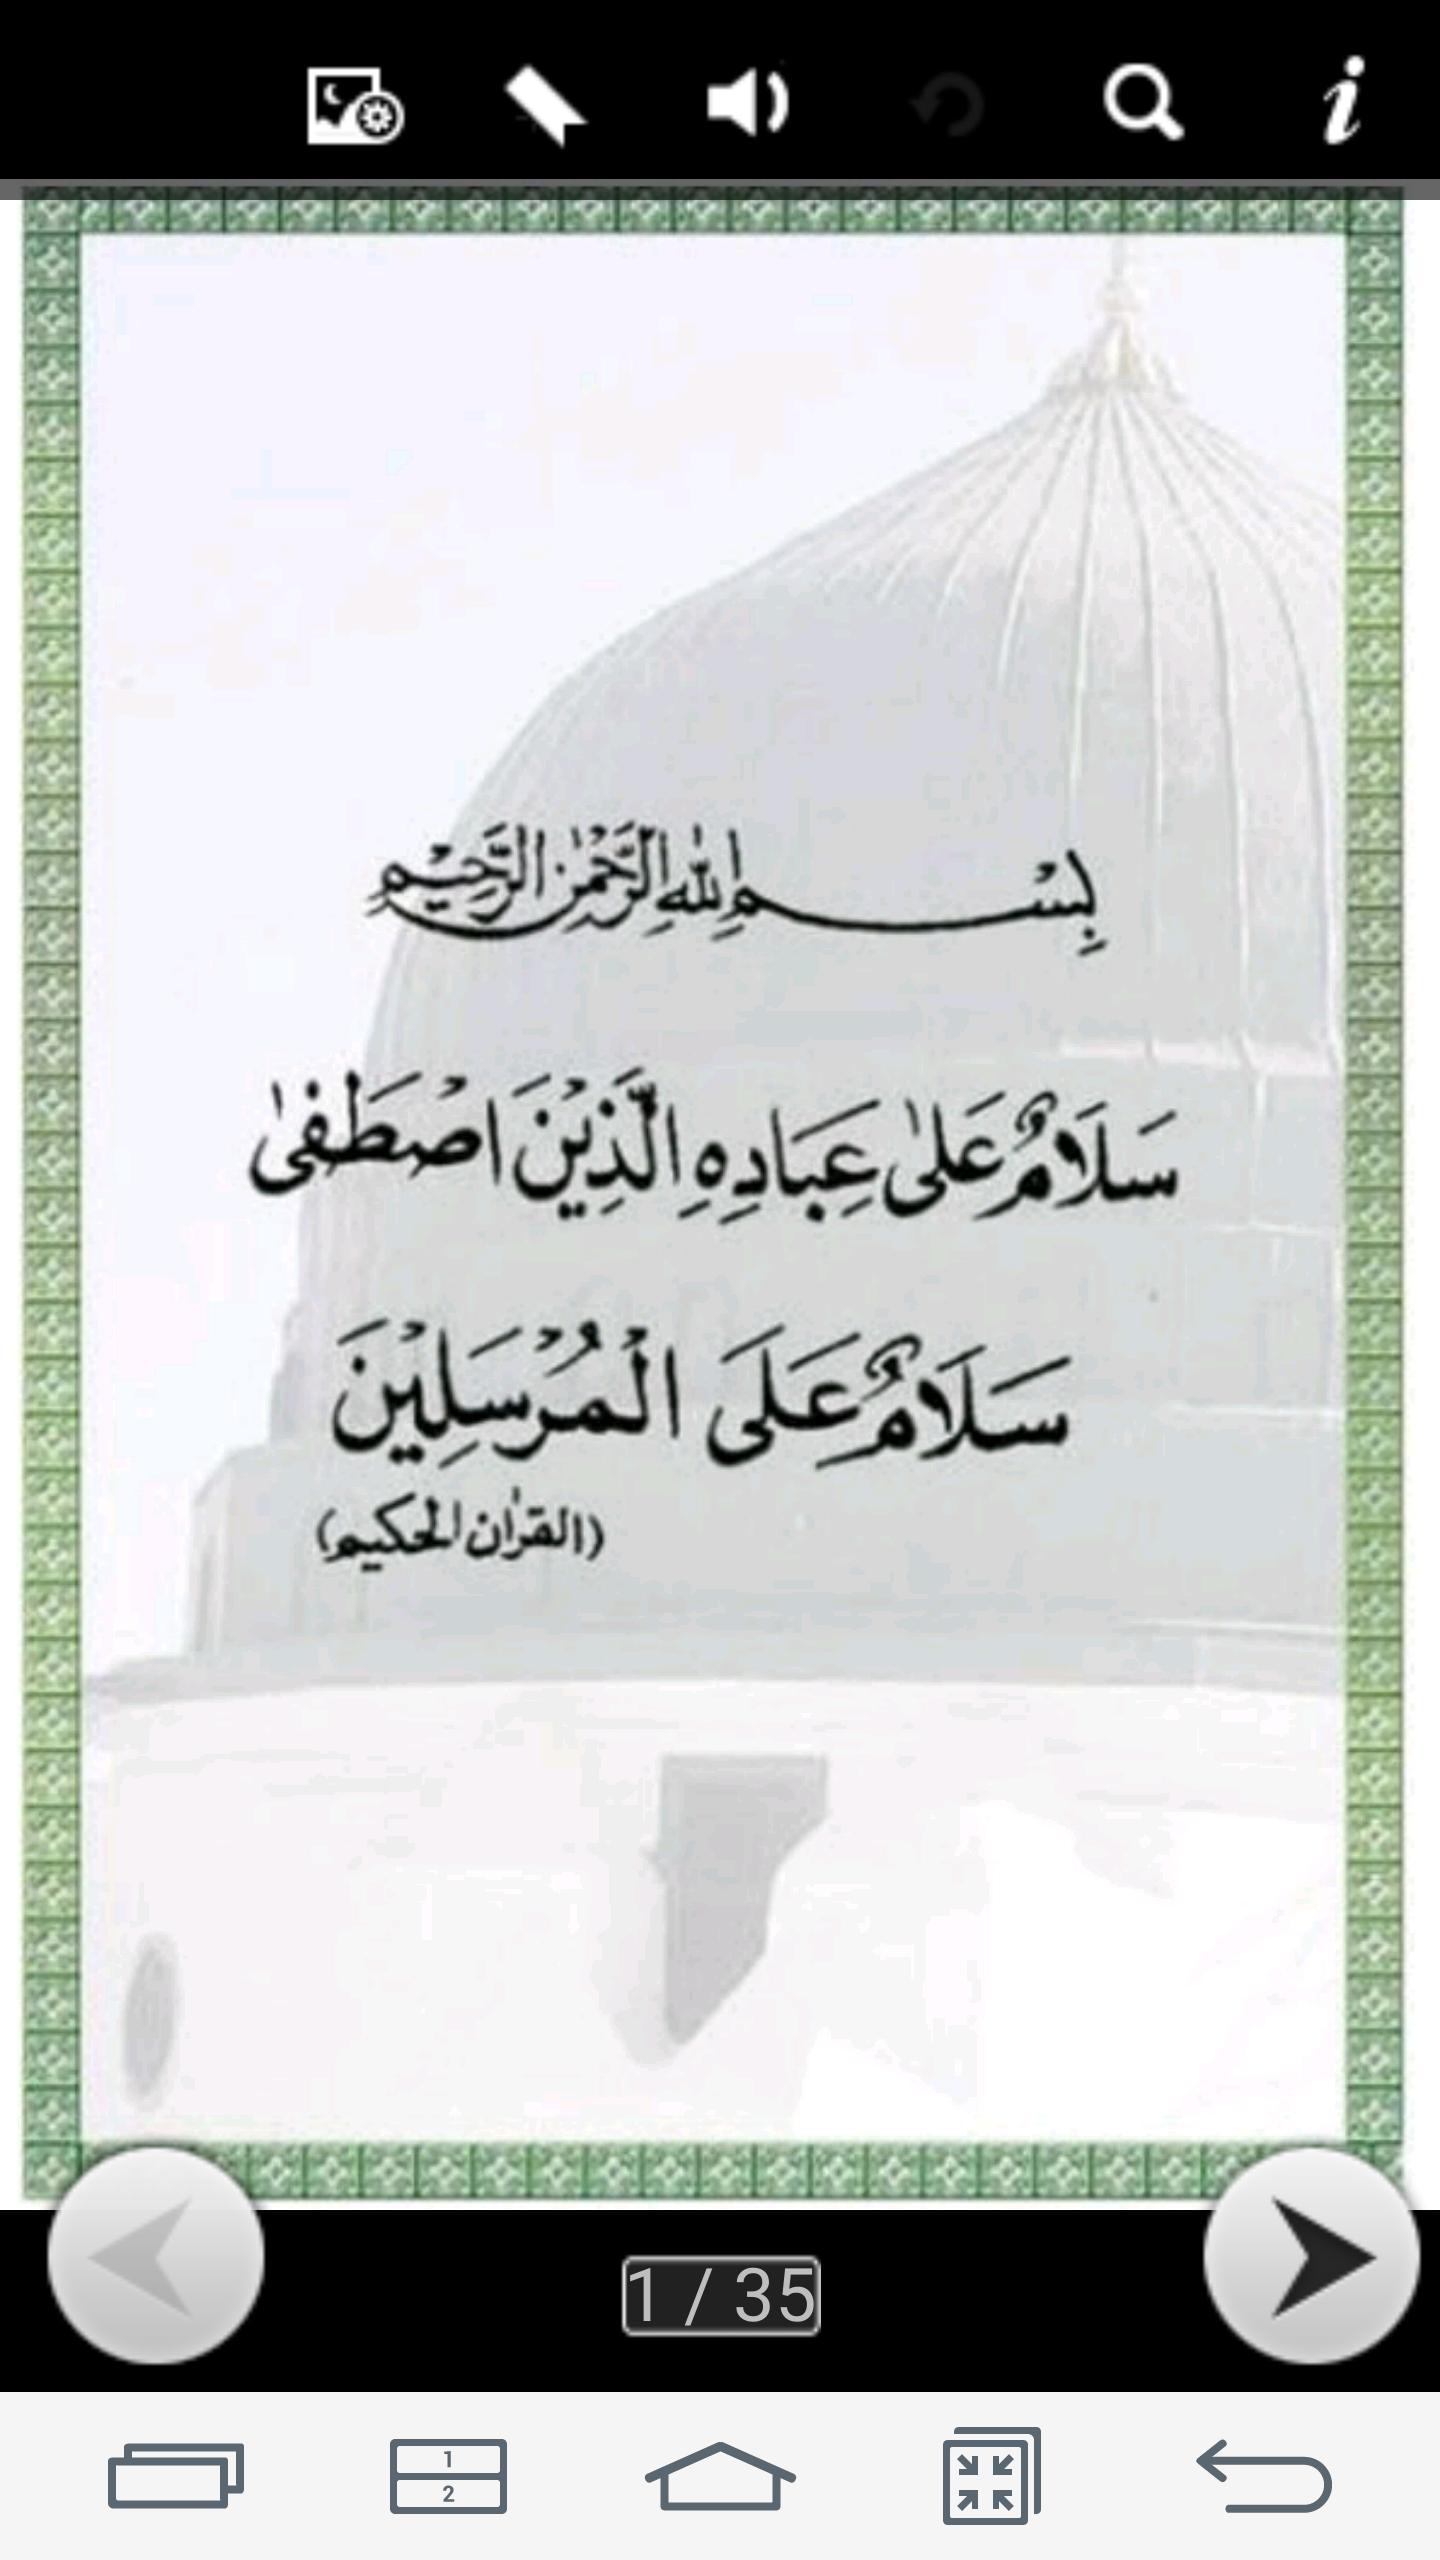 بِسْمِ اللهِ الرَّحْمٰنِ الرَّحِيْمِ
سَلَامٌ عَلٰى عِبَادِهِ الَّذِيْنَ اصْطَفٰى
سَلَامٌ عَلَى الْمُرْسَلِيْنَ
(القرٰان الحكيم)
1 / 35
1
2